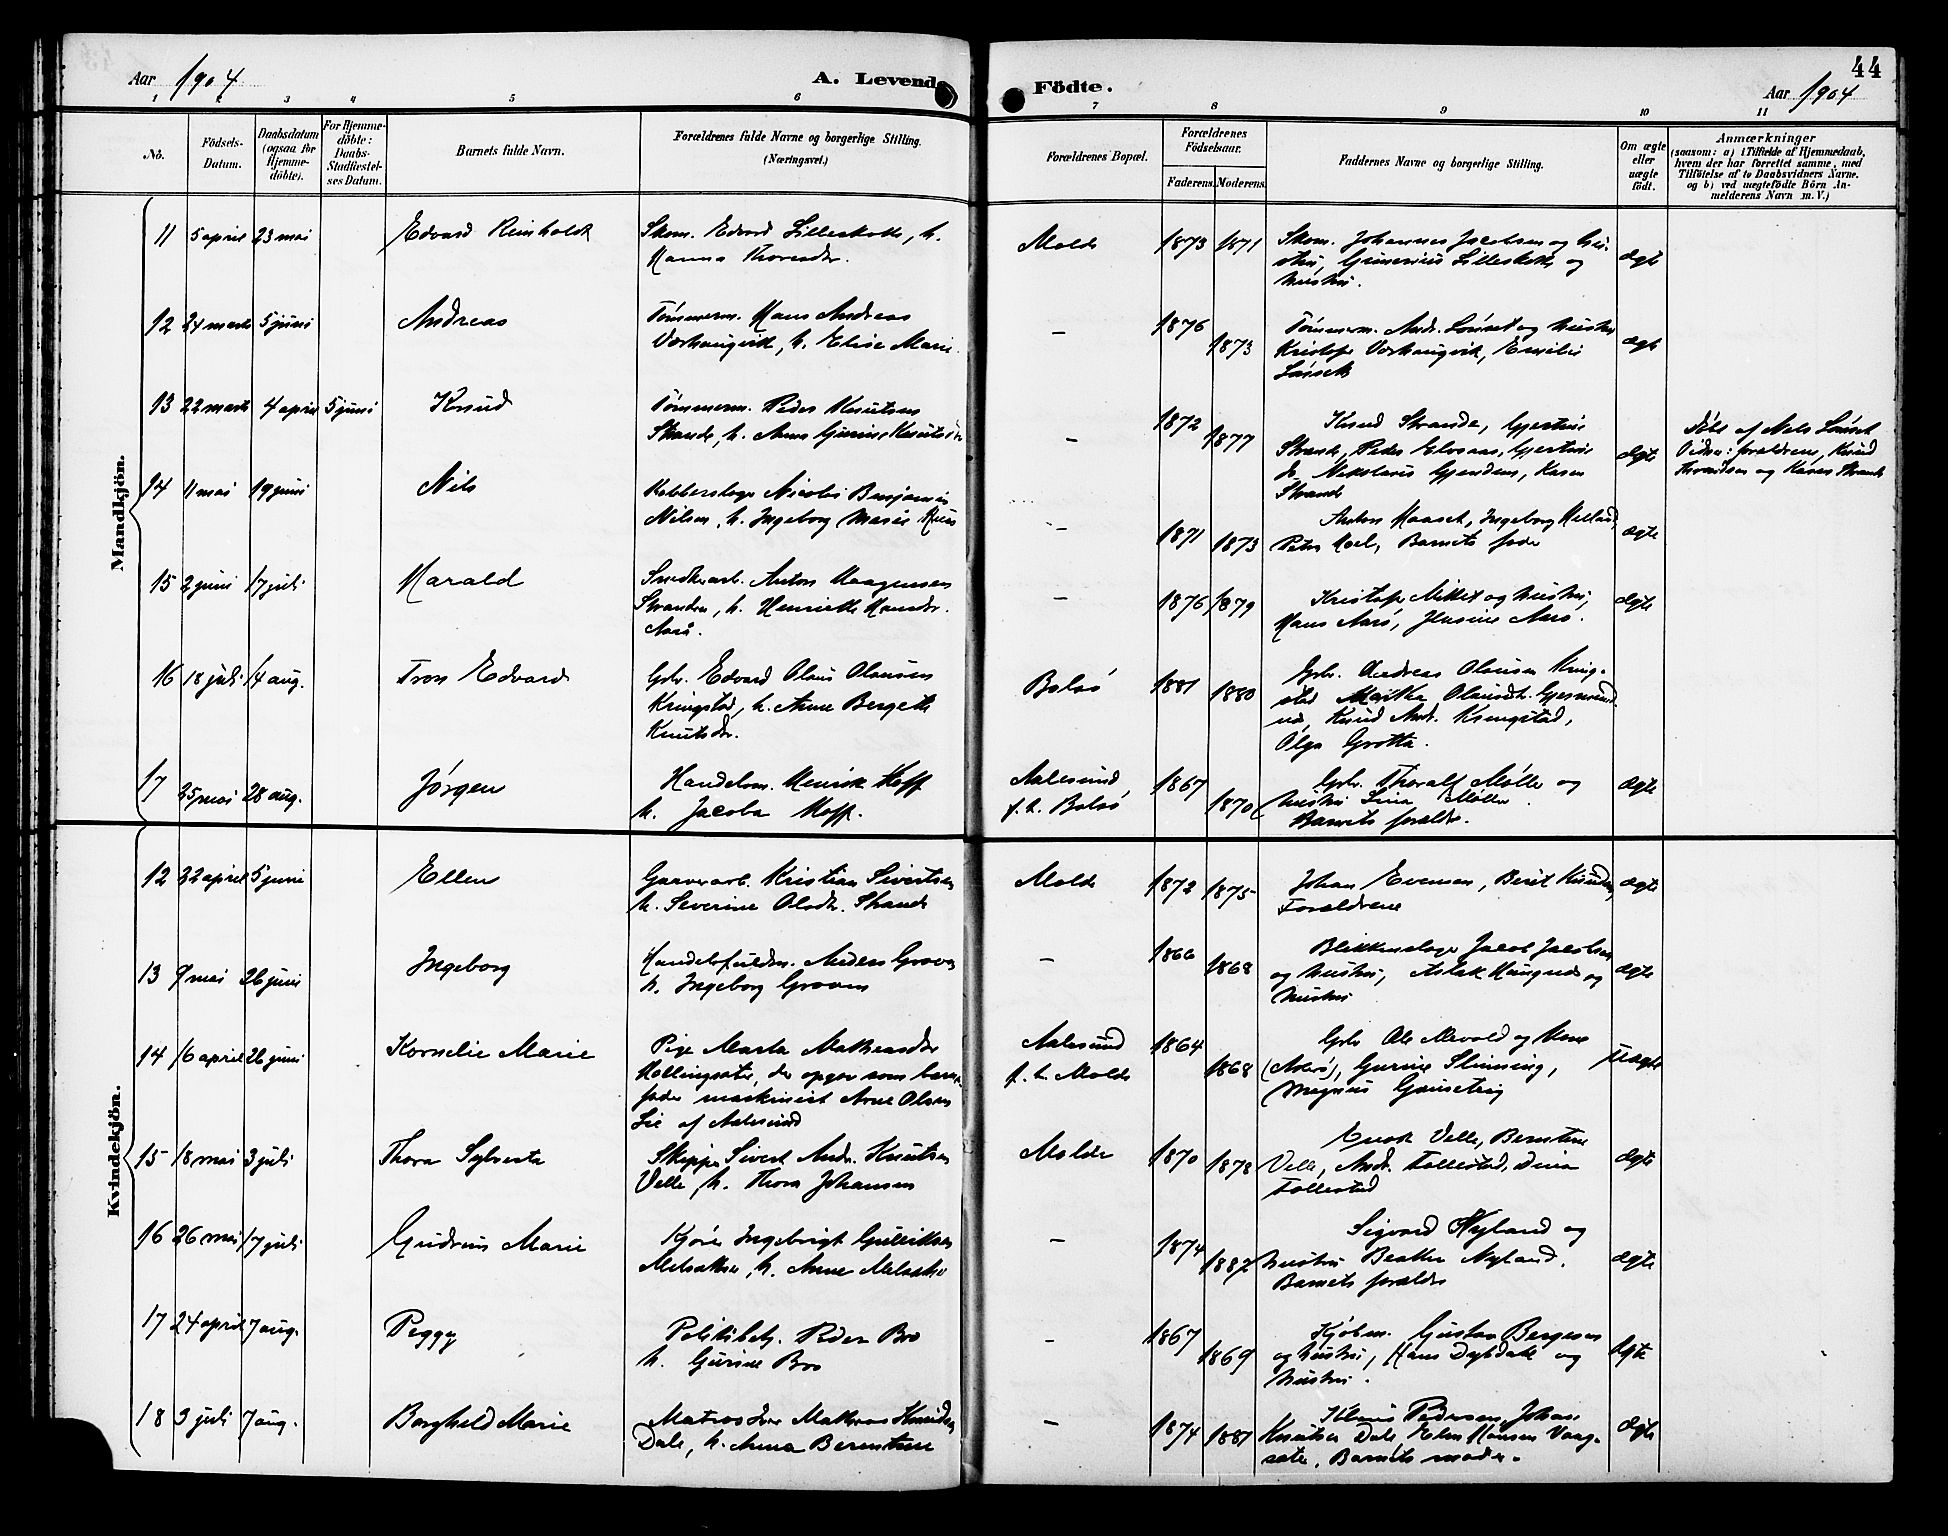 Aar 1904
A. Levende
Födte.
44
Aar 1904
1 2 3 4 5 6 7 8 9 10 11
No.
Födsels-
Datum.
Daabsdatum
(ogsaa for
Hjemme-
döbte).
For Hjemme-
döbte:
Daabs-
Stadfæstel-
ses Datum.
Barnets fulde Navn.
Forældrenes fulde Navne og borgerlige Stilling.
(Næringsvei.)
Forældrenes Bopæl.
Forældrenes
Födselsaar.
Faderens. Moderens.
Faddernes Navne og borgerlige Stilling.
Om ægte
eller
uægte
födt.
Anmærkninger
(saasom: a) i Tilfælde af Hjemmedaab,
hvem der har forrettet samme, med
Tilföielse af to Daabsvidners Navne.
og b) ved uægtefödte Börn An-
melderens Navn m. V.)
Mandkjön.
11 5 april 23 mai Edvard Reinholdt
Skom. Edvard Lilleskotte, h.
Hanna Thorsdr.
Molde 1873 1871
Skom. Johannes Jacobsen og hu-
stru, Lilleskotte og
hustru.
ægte
12 24 marts 5 juni Andreas
Tømmerm. Hans Andreas
h. Elise Marie.
– 1876 1873
Tømmerm. Andr. Lønset og hustru
Emilie
Lønset
ægte
13 22 marts 4 april 5 juni Knud
Tømmerm. Peder Knutsen
Strande, h. Anna Gurine Knutsdr.
– 1872 1877
Knud Strande, Gjertine
Strande, Peder Gjertine
Gjendem, Karen
Strande
ægte
Døbt af Nels Lønset
Vidner: forældrene, Knud
og Karen Strande
14 11 mai 19 juni Nils
Kobberslager Nicolai Benjamin
Nilsen, h. Ingeborg Marie
– 1871 1873
Anton Haaset, Ingeborg
Peter Barnets fader
ægte
15 2 juni 17 juli Harald
Snedkerarb. Anton Haagensen
Stranden, h. Henriette Hansdr.
Aarø.
– 1876 1879
Kristofer og hustru,
Hans Aarø, Jensine Aarø.
ægte
16 18 juli 14 aug. Tron Edvard
Gbr. Edvard Olaus Olausen
Kringstad, h. Anne Bergette
Knutsdr.
Bolsø 1881 1880
Gbr. Andreas Olausen Kring-
stad Olausdt.
Knud Andr. Kringstad,
Olga Grotta.
17 25 mai 28 aug. Jørgen
Handelsm. Henrik Hoff
h. Jacoba Hoff.
Aalesund
f. t. Bolsø
1867 1870
Gbr. Thoralf Møller og
hustru Lina Møller.
Barnets forældre.
ægte
Kvindekjön.
12 22 april 5 juni Ellen
Garverarb. Kristian Sivertsen
h. Severine Olsdt. Strande
Molde 1872 1875
Johan Evensen, Berit Knudsen,
Forældrene
ægte
13 9 mai 26 juni Ingeborg
Handelsfuldm. Anders Groven
h. Ingeborg Groven
– 1866 1868
Blikkenslager Jacob Jacobsen
og hustru, Aslak og
hustru
ægte
14 16 april 26 juni Kornelie Marie
Pige Marta Matheasdr
der opgav som barne-
fader maskinist Arne Olsen
Lie af Aalesund
Aalesund
f. t. Molde
1864 1868
Gbr Ole Mevold og Kone
Gurine
Magnus
uægte
15 18 mai 3 juli Thora Sylvesta
Skipper Sivert Andr. Knutsen
Velle, h. Thora Johansen
Molde 1870 1878
Enok Velle, Berntine
Velle, Andr. Tollestad, Dina
Tollestad
ægte
16 26 mai 17 juli Gudrun Marie
Kjører Ingebrigt Gulliksen
h. Anne
– 1874 1882
Sigvard Nyland og
hustru Beathe Nyland.
Barnets forældre
ægte
17 24 april 7 aug. Peggy
Politibetj. Peder Bro
h. Gurine Bro
– 1867 1869
Kjøbm. Gustav Bergesen
og hustru, Hans Dybdal og
hustru.
ægte
18 3 juli 7 aug. Borghild Marie
Matros Iver Mathias Knudsen
Dale, h. Anna Berentine
– 1874 1881
Klaus Pedersen, Johan
Knutsen Dale Elen Hansen Vaag-
sæter, Barnets moder.
ægte